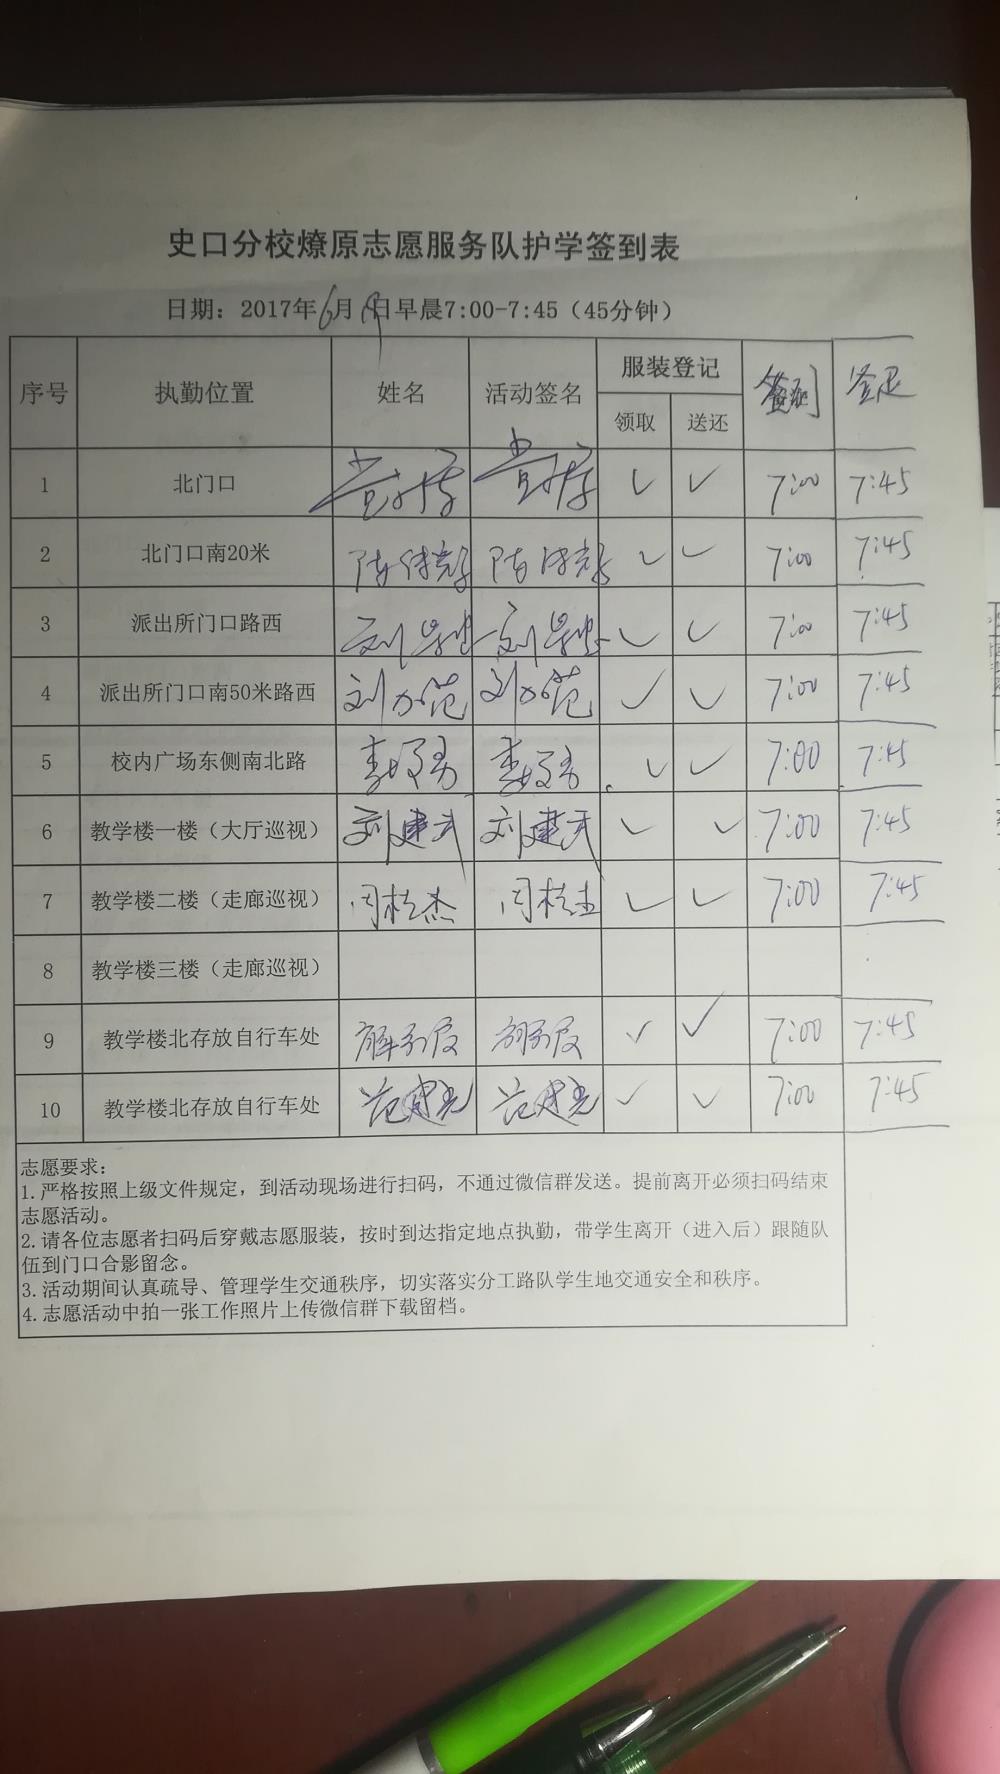 史口分校燎原志愿服务队护学签到表
日期：2017年6月19日早晨7:00-7:45（45分钟）
序号 执勤位置 姓名 活动签名 服装登记 签到 签退
领取 送还
1 北门口 ✓ ✓ 7:00 7:45
2 北门口南20米 ✓ ✓ 7:00 7:45
3 派出所门口路西 ✓ ✓ 7:00 7:45
4 派出所门口南50米路西 刘力范 刘力范 ✓ ✓ 7:00 7:45
5 校内广场东侧南北路 ✓ ✓ 7:00 7:45
6 教学楼一楼（大厅巡视） 刘建武 刘建武 ✓ ✓ 7:00 7:45
7 教学楼二楼（走廊巡视） ✓ ✓ 7:00 7:45
8 教学楼三楼（走廊巡视）
9 教学楼北存放自行车处 ✓ ✓ 7:00 7:45
10 教学楼北存放自行车处 范建亮 范建亮 ✓ ✓ 7:00 7:45
志愿要求：
1.严格按照上级文件规定，到活动现场进行扫码，不通过微信群发送。提前离开必须扫码结束
志愿活动。
2.请各位志愿者扫码后穿戴志愿服装，按时到达指定地点执勤，带学生离开（进入后）跟随队
伍到门口合影留念。
3.活动期间认真疏导、管理学生交通秩序，切实落实分工路队学生地交通安全和秩序。
4.志愿活动中拍一张工作照片上传微信群下载留档。